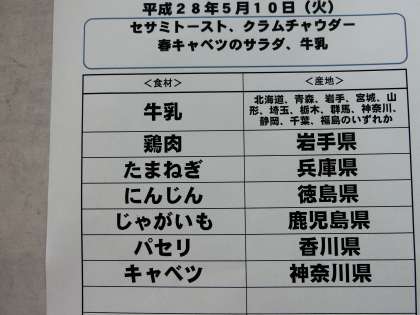 平成２８年５月１０日（火）
セサミトースト、クラムチャウダー
春キャベツのサラダ、牛乳
＜食材＞ ＜産地＞
牛乳
北海道、青森、岩手、宮城、山
形、埼玉、栃木、群馬、神奈川、
静岡、千葉、福島のいずれか
鶏肉 岩手県
たまねぎ 兵庫県
にんじん 徳島県
じゃがいも 鹿児島県
パセリ 香川県
キャベツ 神奈川県